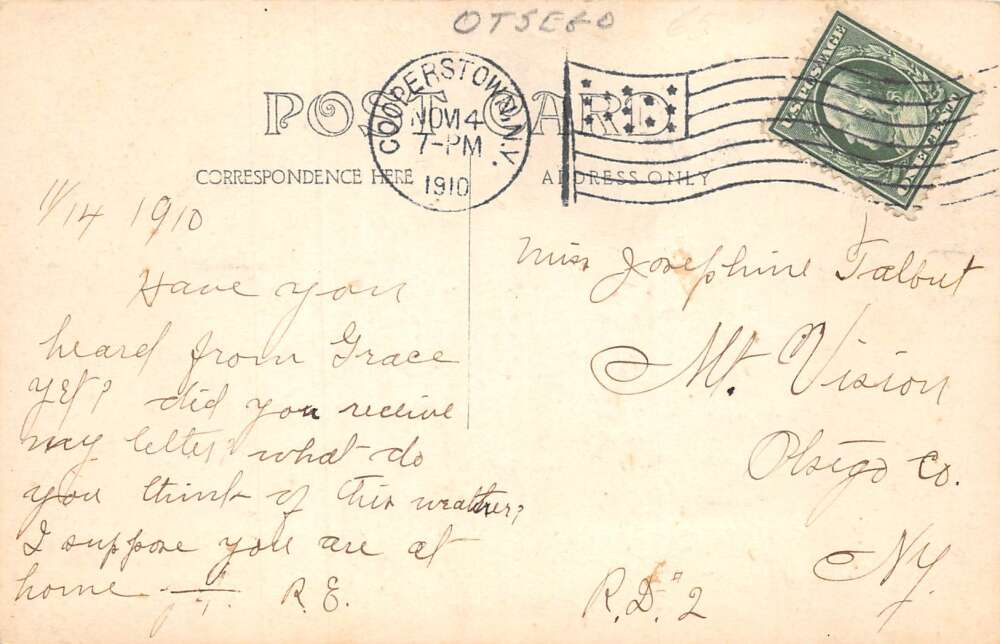 OTSEGO
POST CARD
COOPERSTOWN, N.Y.
NOV 14
7-PM
1910
U.S. POSTAGE
ONE CENT
CORRESPONDENCE HERE
ADDRESS ONLY
11/14 1910
Have you
heard from Grace
yet? did you receive
my letter? what do
you think of this weather?
I suppose you are at
home
R. E.
Miss Josephine Talbut
Mt. Vision
Otsego Co.
NY.
R.D. #2